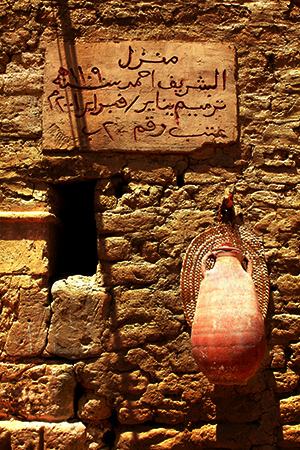 منزل
الشريف احمد سنة ١١٠٩هـ
ترميم يناير/فبراير ٢٠٠٢م
عتب رقم ٢٠